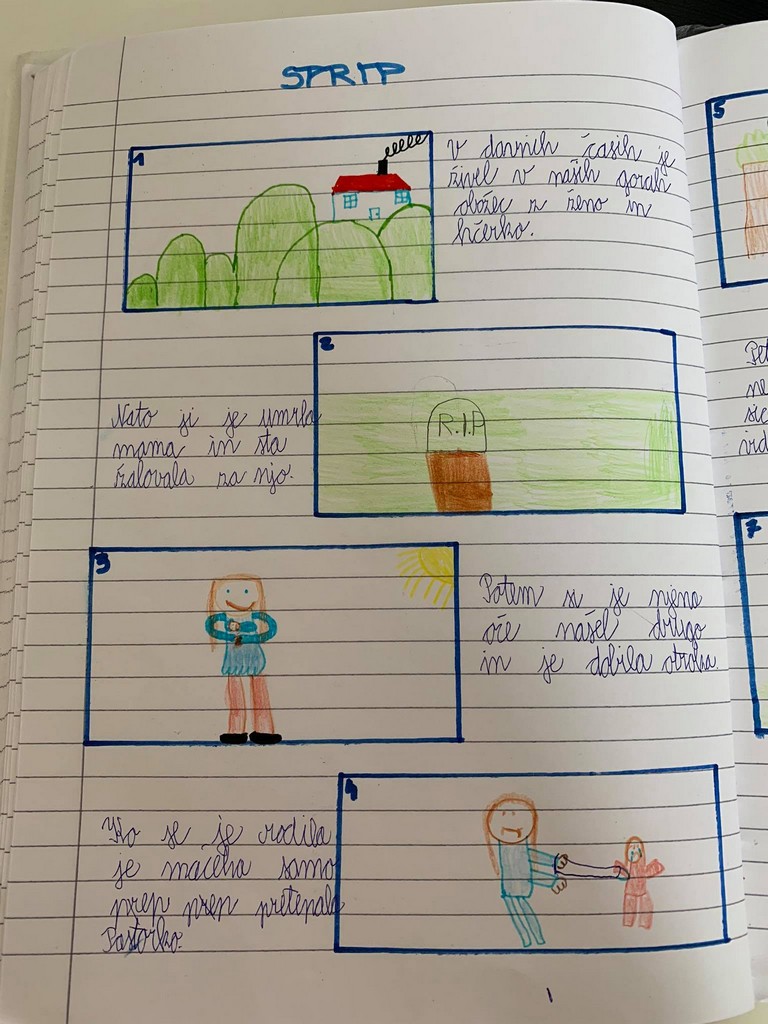 STRIP
1
V davnih časih je
živel v naših gorah
obožec z ženo in
hčerko.
2
R.I.P
Nato ji je umrla
mama in sta
žalovala za njo.
3
Potem si je njena
oče našel drugo
in je dobila otroka.
4
Ko se je rodila
je mačeha samo
pretepala
Pastorko.
1
5
Pet
ne
sic
vid
7